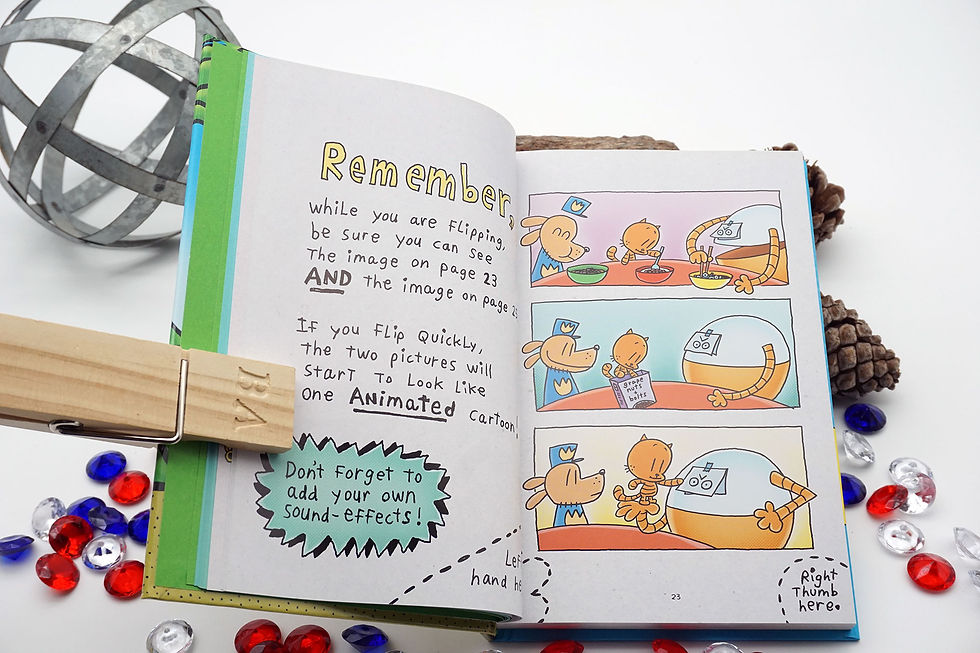 Remember,
while you are Flipping,
be sure you can see
The image on page 23
AND the image on page
If you Flip Quickly,
the two pictures will
start to Look Like
one Animated cartoon!
Don't Forget to
add your own
Sound-effects!
Left
hand he
grape
nuts
n
bolts
23
Right
Thumb
here.